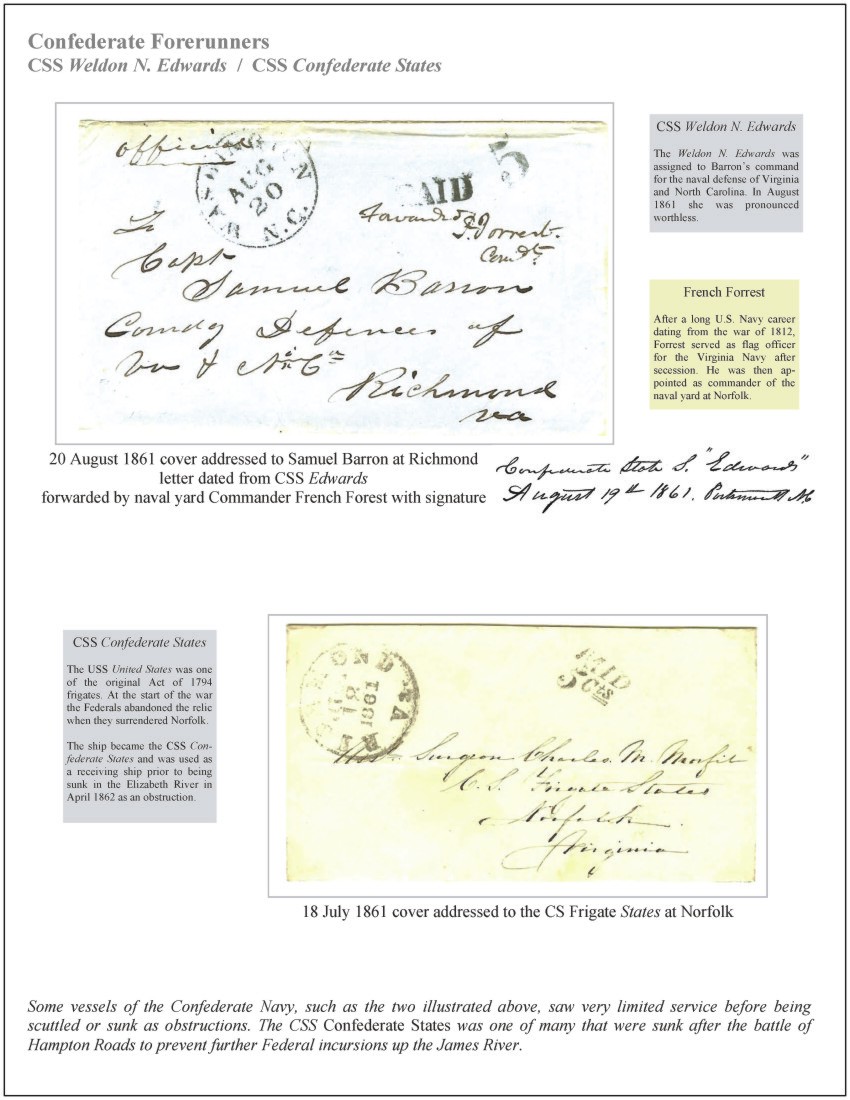 Confederate Forerunners
CSS Weldon N. Edwards / CSS Confederate States
official
WASHINGTON N.C.
AUG
20
PAID 5
Forwarded
F. Forrest.
Comdt.
To
Capt
Samuel Barron
Comdg Defences of
Va & No Ca
Richmond
Va
CSS Weldon N. Edwards
The Weldon N. Edwards was
assigned to Barron's command
for the naval defense of Virginia
and North Carolina. In August
1861 she was pronounced
worthless.
French Forrest
After a long U.S. Navy career
dating from the war of 1812,
Forrest served as flag officer
for the Virginia Navy after
secession. He was then ap-
pointed as commander of the
naval yard at Norfolk.
20 August 1861 cover addressed to Samuel Barron at Richmond
letter dated from CSS Edwards
forwarded by naval yard Commander French Forest with signature
Confederate State S. "Edwards"
August 19th 1861. Portsmouth N.C
CSS Confederate States
The USS United States was one
of the original Act of 1794
frigates. At the start of the war
the Federals abandoned the relic
when they surrendered Norfolk.
The ship became the CSS Con-
federate States and was used as
a receiving ship prior to being
sunk in the Elizabeth River in
April 1862 as an obstruction.
RICHMOND VA
18
1861
PAID
5 Cts
Surgeon Charles M. Morfit
C. S. Frigate States
Norfolk
Virginia
18 July 1861 cover addressed to the CS Frigate States at Norfolk
Some vessels of the Confederate Navy, such as the two illustrated above, saw very limited service before being
scuttled or sunk as obstructions. The CSS Confederate States was one of many that were sunk after the battle of
Hampton Roads to prevent further Federal incursions up the James River.